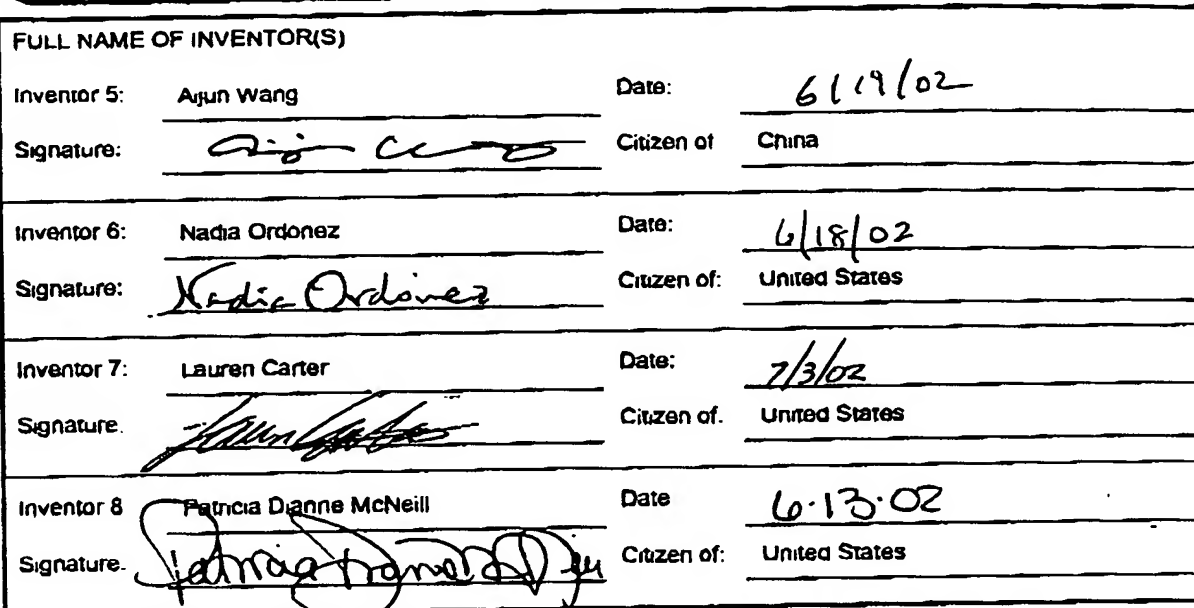 FULL NAME OF INVENTOR(S)
Inventor 5: Aijun Wang Date: 6/19/02
Signature: Citizen of China
Inventor 6: Nadia Ordonez Date: 6/18/02
Signature: Nadia Ordonez Citizen of: United States
Inventor 7: Lauren Carter Date: 7/3/02
Signature. Lauren Carter Citizen of. United States
Inventor 8 Patricia Dianne McNeill Date 6·13·02
Signature. Patricia Dianne Citizen of: United States